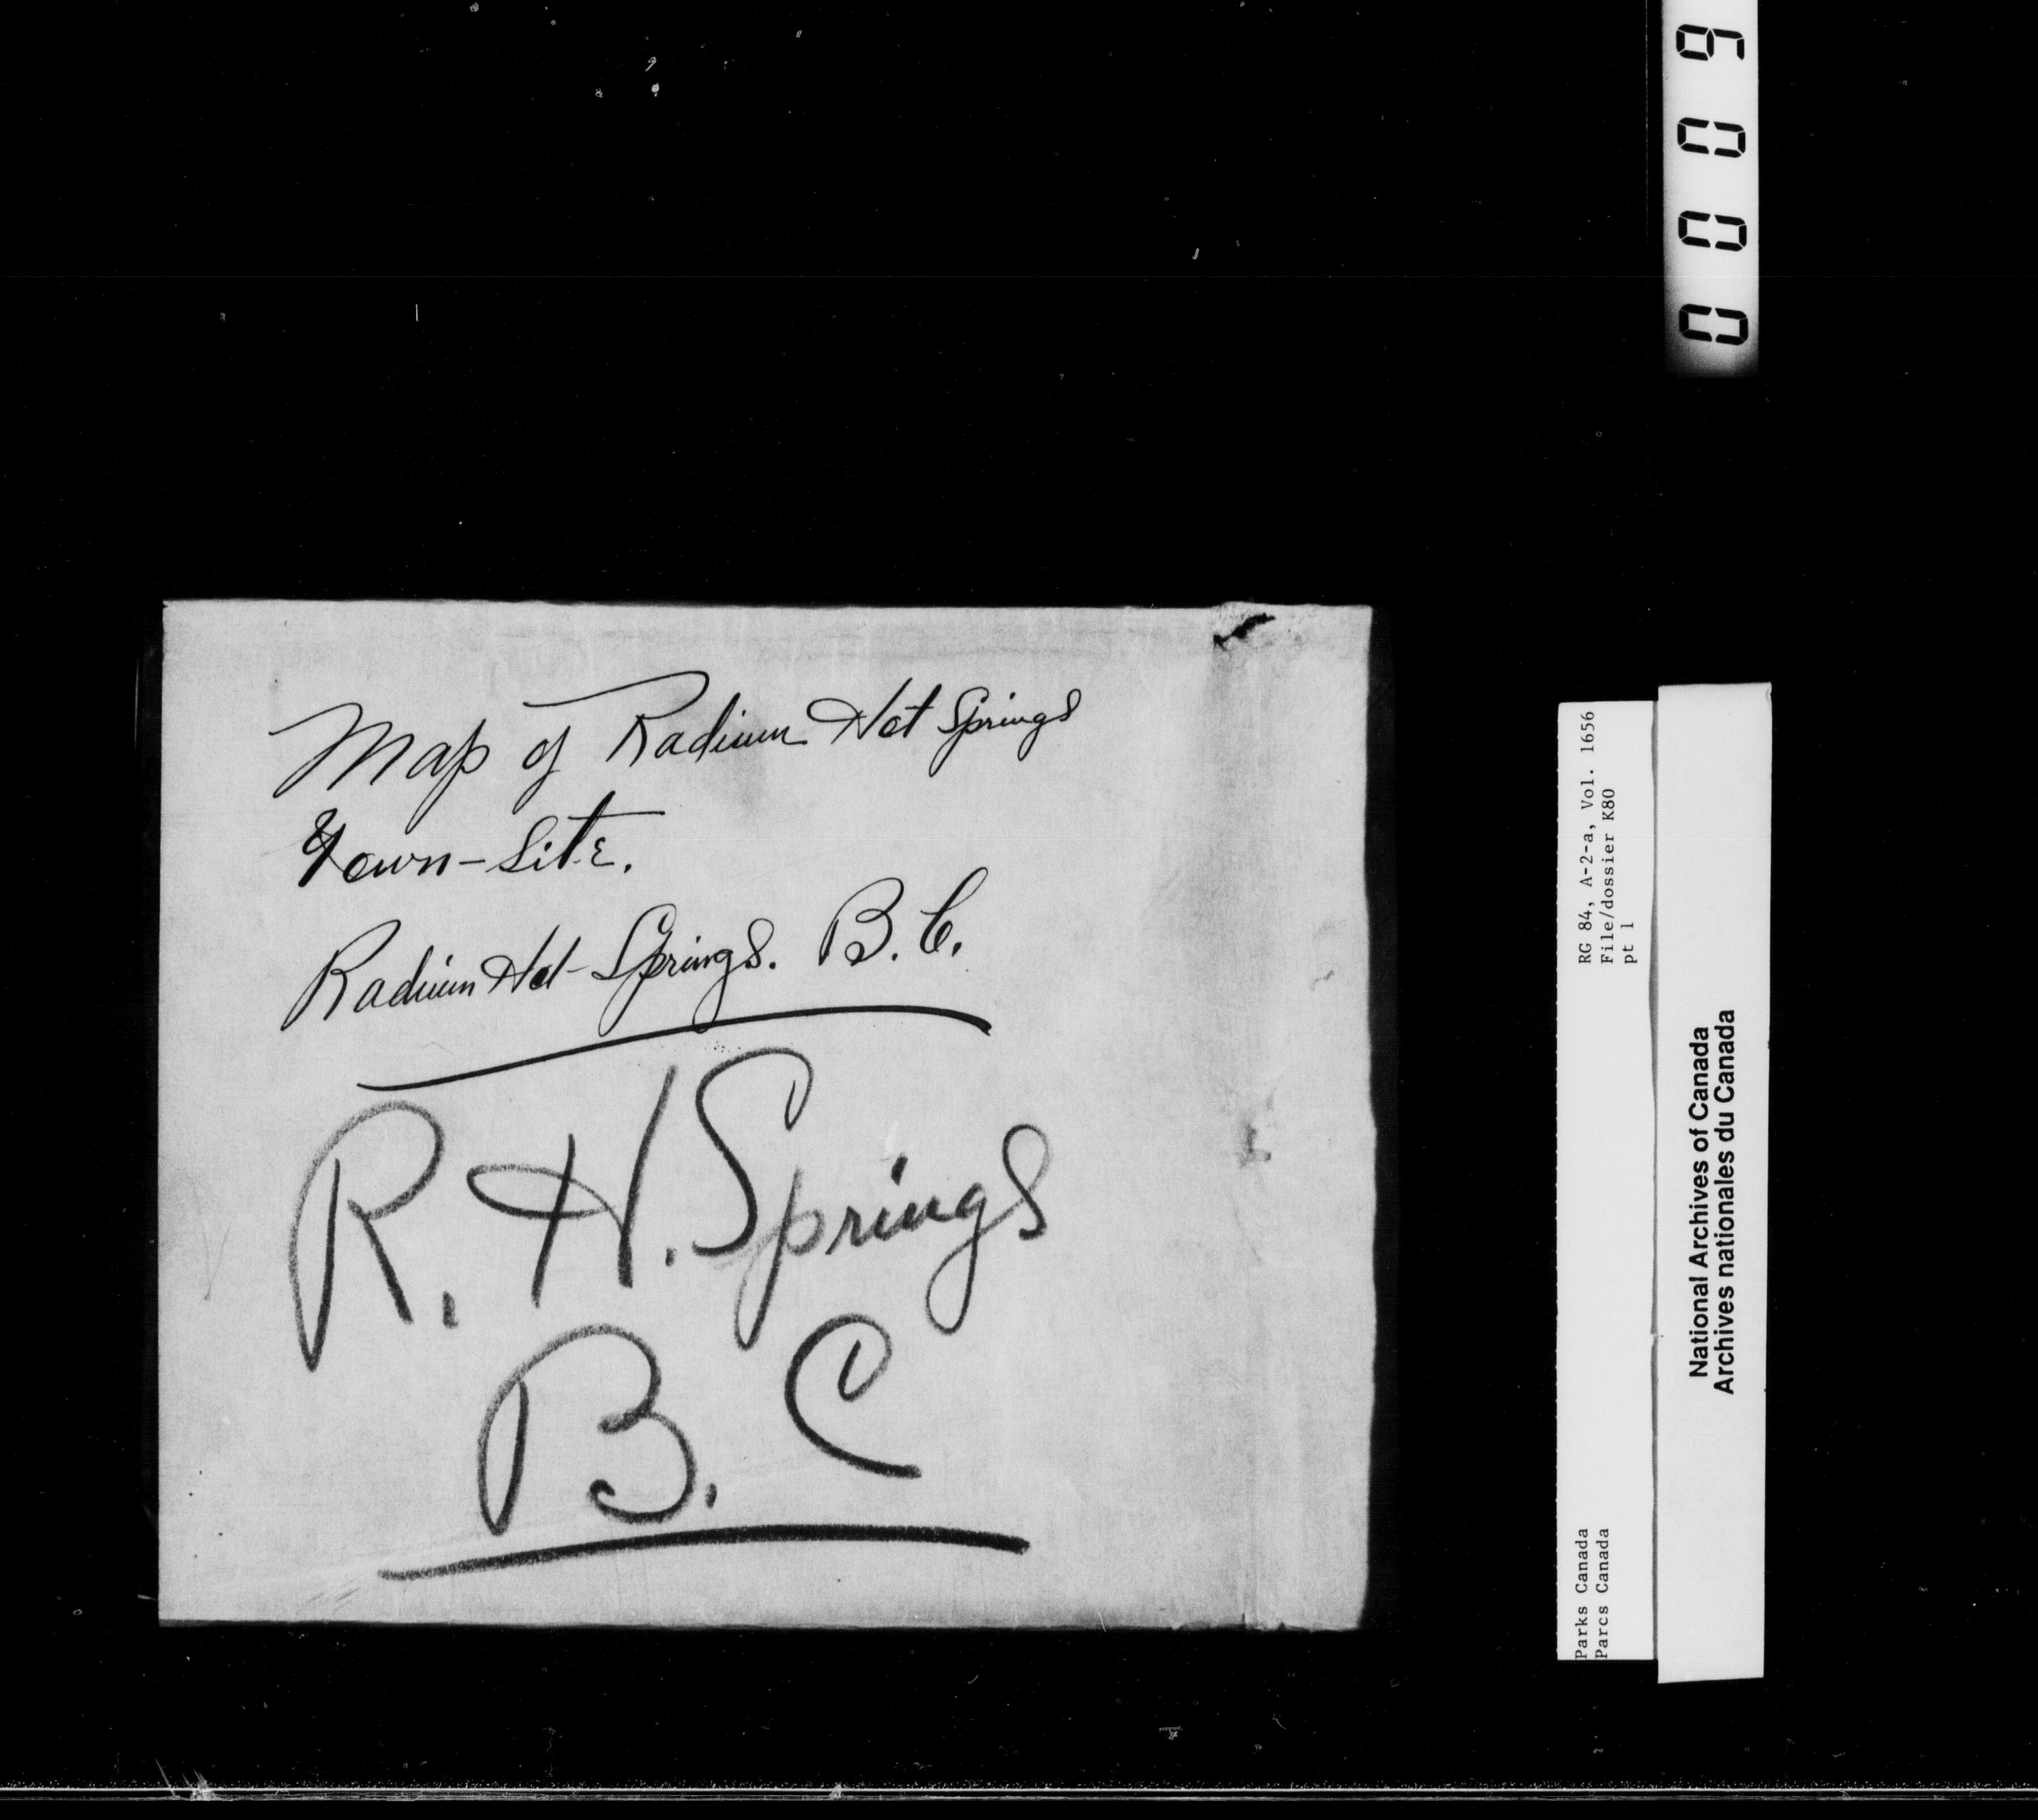 Map of Radium Hot Springs
Town-Site.
Radium Hot Springs. B.C.
R. H. Springs
B. C
0009
RG 84, A-2-a, Vol. 1656
File/dossier K80
pt 1
Parks Canada
Parcs Canada
National Archives of Canada
Archives nationales du Canada